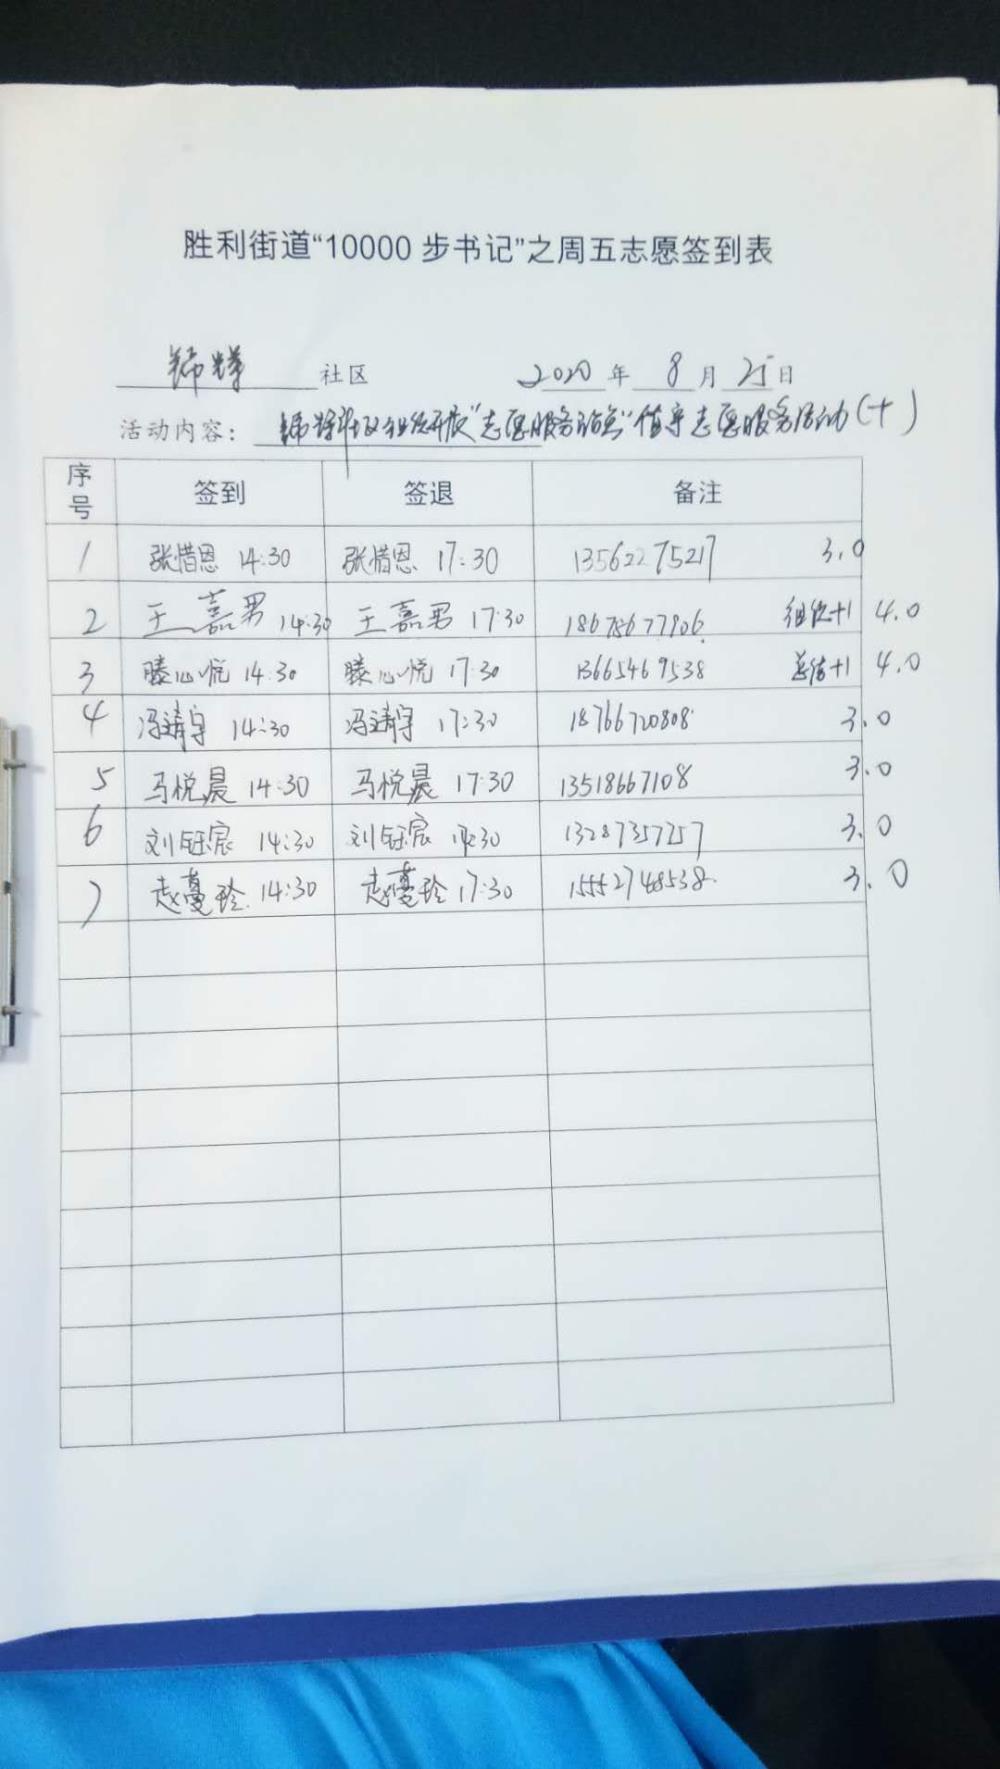 胜利街道“10000步书记”之周五志愿签到表
锦 社区 2020年 8月 25日
活动内容： 开展“志愿服务站点”值守志愿服务活动(十)
序号 签到 签退 备注
1 张惜恩 14:30 张惜恩 17:30 13562275217 3.0
2 王嘉男 14:30 王嘉男 17:30 18678677906 组织+1 4.0
3 滕心悦 14:30 滕心悦 17:30 13665469538 总结+1 4.0
4 冯靖宇 14:30 冯靖宇 17:30 18766720808 3.0
5 马悦晨 14:30 马悦晨 17:30 13518667108 3.0
6 刘钰宸 14:30 刘钰宸 17:30 13287357257 3.0
7 赵蔓玲 14:30 赵蔓玲 17:30 15552748538 3.0